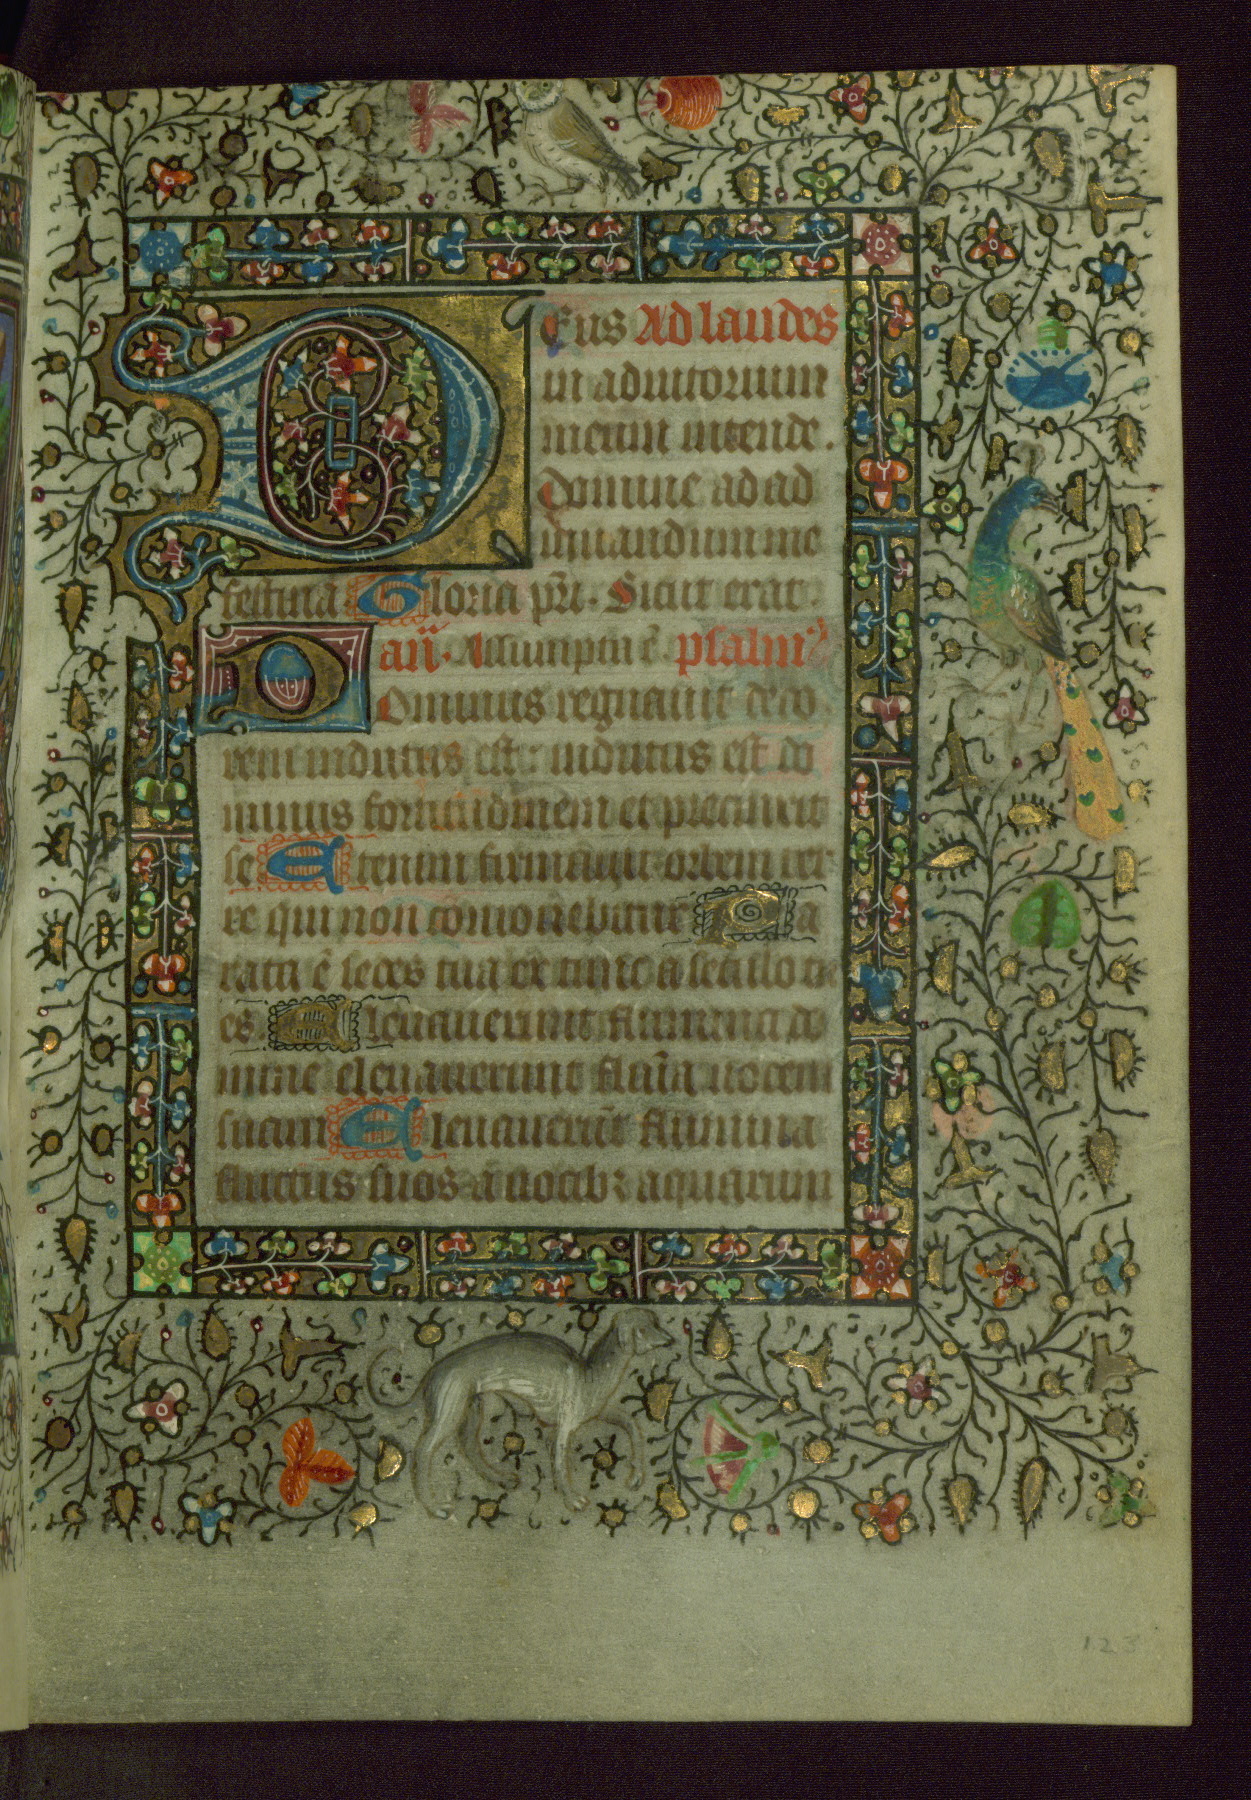 Deus Ad laudes
in adiutorium
meum intende.
Domine ad ad
iuuandum me
festina Gloria pr̄i. Sicut erat.
añ. Assumpta ē. psalm9
Dominus regnauit deco
rem indutus est: indutus est do
minus fortitudinem et precinxit
se Etenim firmauit orbem ter
re qui non cōmouebitur Pa
rata ē sedes tua ex tunc a seculo tu
es. Eleuauerunt flumina do
mine eleuauerunt flūīa uocem
suam Eleuauerūt flumina
fluctus suos a uocibꝫ aquarum
123